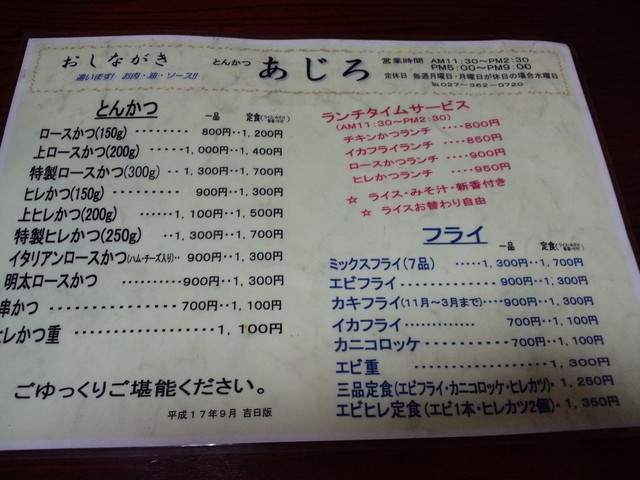 おしながき
違います! お肉・油・ソース!!
とんかつ
あじろ
営業時間 AM11:30～PM2:30
PM5:00～PM9:00
定休日 毎週月曜日・月曜日が休日の場合水曜日
℡027-362-0720
とんかつ 一品 定食
ロースかつ(150g) ‥‥‥‥ 800円‥1,200円
上ロースかつ(200g) ‥‥‥ 1,000円‥1,400円
特製ロースかつ(300g) ‥ 1,300円‥1,700円
ヒレかつ(150g) ‥‥‥‥‥ 900円‥1,300円
上ヒレかつ(200g) ‥‥‥ 1,100円‥1,500円
特製ヒレかつ(250g) ‥‥ 1,300円‥1,700円
イタリアンロースかつ(ハム・チーズ入り)‥ 900円‥1,300円
明太ロースかつ ‥‥‥‥‥900円‥1,300円
串かつ ‥‥‥‥‥‥‥700円‥1,100円
ヒレかつ重 ‥‥‥‥‥‥‥‥‥1,100円
ごゆっくりご堪能ください。
平成17年9月 吉日版
ランチタイムサービス
(AM11:30～PM2:30)
チキンかつランチ ‥‥800円
イカフライランチ ‥‥850円
ロースかつランチ ‥‥900円
ヒレかつランチ ‥‥950円
☆ ライス・みそ汁・新香付き
☆ ライスお替わり自由
フライ 一品 定食
ミックスフライ(7品) ‥‥‥1,300円‥1,700円
エビフライ ‥‥‥‥‥‥‥900円‥1,300円
カキフライ(11月～3月まで)‥‥900円‥1,300円
イカフライ ‥‥‥‥‥‥‥700円‥1,100円
カニコロッケ ‥‥‥‥‥‥700円‥1,100円
エビ重 ‥‥‥‥‥‥‥‥‥‥1,300円
三品定食(エビフライ・カニコロッケ・ヒレカツ)・1,250円
エビヒレ定食(エビ1本・ヒレカツ2個)・1,350円